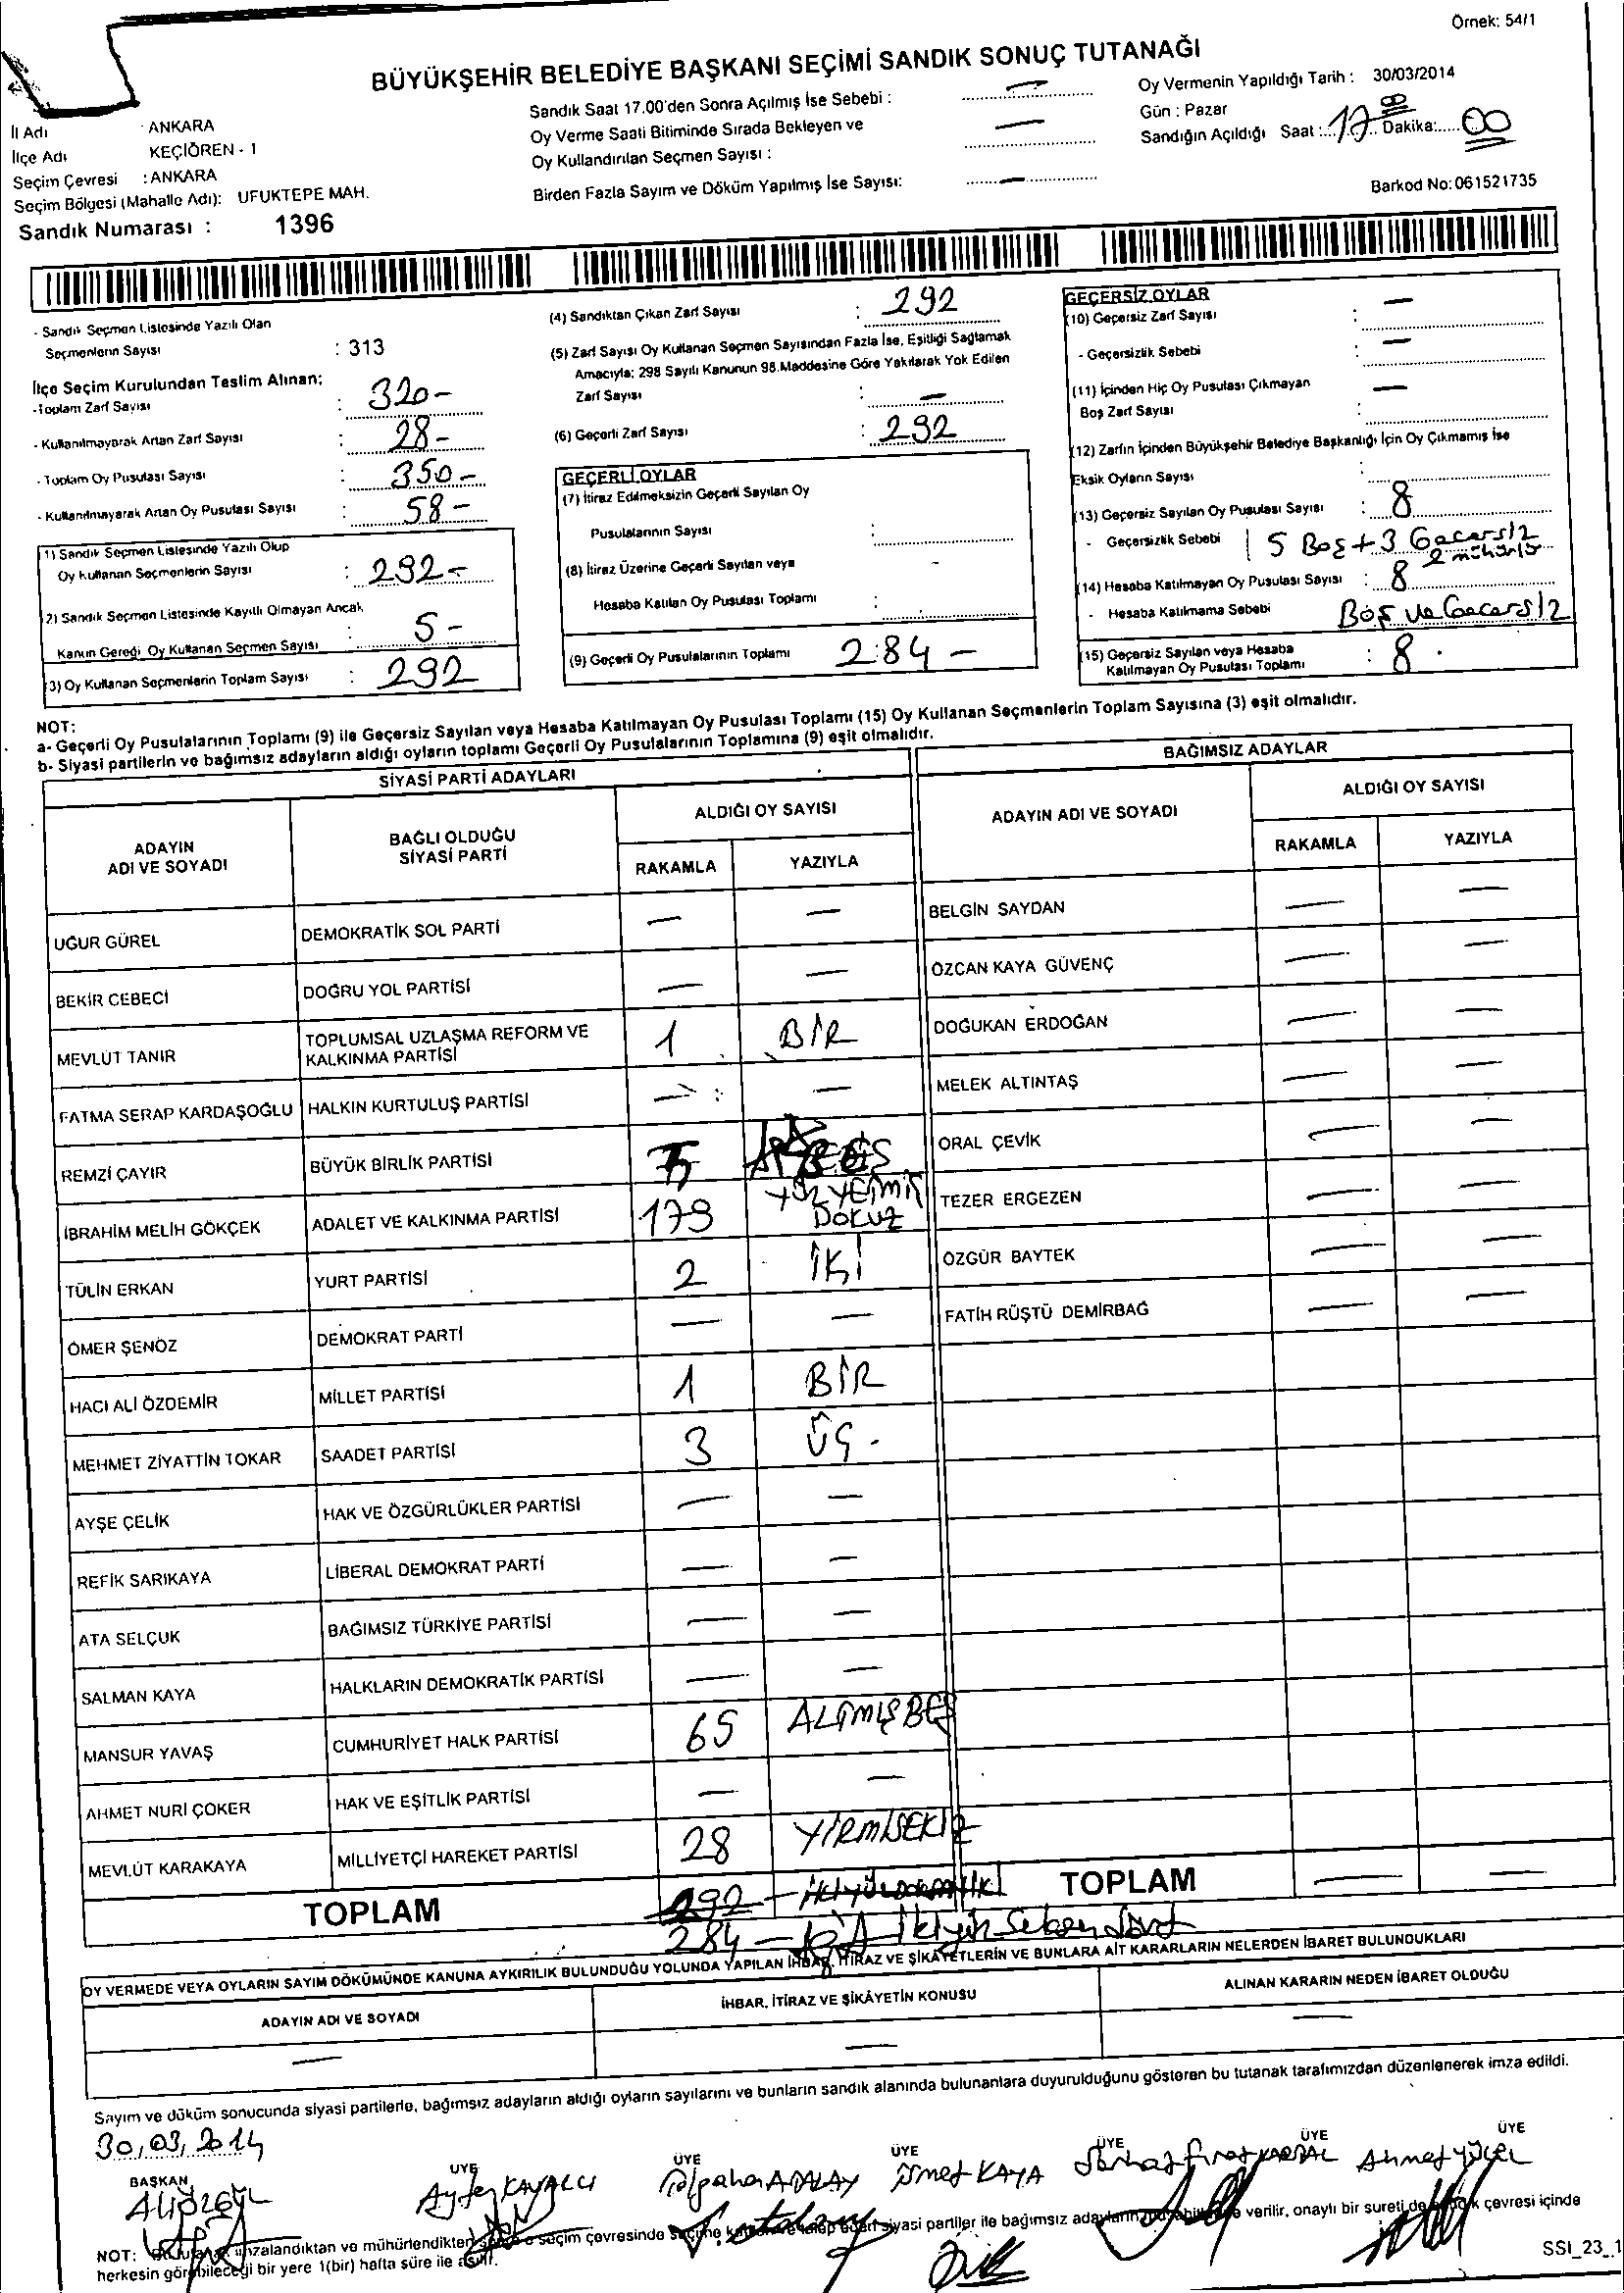 Örnek: 54/1
BÜYÜKŞEHİR BELEDİYE BAŞKANI SEÇİMİ SANDIK SONUÇ TUTANAĞI
İl Adı : ANKARA
İlçe Adı KEÇİÖREN - 1
Seçim Çevresi : ANKARA
Seçim Bölgesi (Mahalle Adı): UFUKTEPE MAH.
Sandık Numarası : 1396
Sandık Saat 17.00'den Sonra Açılmış İse Sebebi : —
Oy Verme Saati Bitiminde Sırada Bekleyen ve
Oy Kullandırılan Seçmen Sayısı : —
Birden Fazla Sayım ve Döküm Yapılmış İse Sayısı: —
Oy Vermenin Yapıldığı Tarih : 30/03/2014
Gün : Pazar
Sandığın Açıldığı Saat : 17 00 Dakika: 00
Barkod No: 061521735
- Sandık Seçmen Listesinde Yazılı Olan
Seçmenlerin Sayısı : 313
İlçe Seçim Kurulundan Teslim Alınan:
-Toplam Zarf Sayısı : 320-
- Kullanılmayarak Artan Zarf Sayısı : 28-
- Toplam Oy Pusulası Sayısı : 350-
- Kullanılmayarak Artan Oy Pusulası Sayısı : 58-
(1) Sandık Seçmen Listesinde Yazılı Olup
Oy Kullanan Seçmenlerin Sayısı : 292-
(2) Sandık Seçmen Listesinde Kayıtlı Olmayan Ancak
Kanun Gereği Oy Kullanan Seçmen Sayısı : 5-
(3) Oy Kullanan Seçmenlerin Toplam Sayısı : 292
(4) Sandıktan Çıkan Zarf Sayısı : 292
(5) Zarf Sayısı Oy Kullanan Seçmen Sayısından Fazla İse, Eşitliği Sağlamak
Amacıyla; 298 Sayılı Kanunun 98.Maddesine Göre Yakılarak Yok Edilen
Zarf Sayısı : —
(6) Geçerli Zarf Sayısı : 292
GEÇERLİ OYLAR
(7) İtiraz Edilmeksizin Geçerli Sayılan Oy
Pusulalarının Sayısı :
(8) İtiraz Üzerine Geçerli Sayılan veya -
Hesaba Katılan Oy Pusulası Toplamı :
(9) Geçerli Oy Pusulalarının Toplamı 284 -
GEÇERSİZ OYLAR
(10) Geçersiz Zarf Sayısı : —
- Geçersizlik Sebebi : —
(11) İçinden Hiç Oy Pusulası Çıkmayan —
Boş Zarf Sayısı :
(12) Zarfın İçinden Büyükşehir Belediye Başkanlığı İçin Oy Çıkmamış İse
Eksik Oyların Sayısı :
(13) Geçersiz Sayılan Oy Pusulası Sayısı : 8
- Geçersizlik Sebebi 5 Boş + 3 Gecersiz
2 mühürlü
(14) Hesaba Katılmayan Oy Pusulası Sayısı : 8
- Hesaba Katılmama Sebebi Boş ve Gecersiz
(15) Geçersiz Sayılan veya Hesaba
Katılmayan Oy Pusulası Toplamı : 8
NOT:
a- Geçerli Oy Pusulalarının Toplamı (9) ile Geçersiz Sayılan veya Hesaba Katılmayan Oy Pusulası Toplamı (15) Oy Kullanan Seçmenlerin Toplam Sayısına (3) eşit olmalıdır.
b- Siyasi partilerin ve bağımsız adayların aldığı oyların toplamı Geçerli Oy Pusulalarının Toplamına (9) eşit olmalıdır.
SİYASİ PARTİ ADAYLARI
ADAYIN ADI VE SOYADI BAĞLI OLDUĞU SİYASİ PARTİ ALDIĞI OY SAYISI
RAKAMLA YAZIYLA
UĞUR GÜREL DEMOKRATİK SOL PARTİ — —
BEKİR CEBECİ DOĞRU YOL PARTİSİ — —
MEVLÜT TANIR TOPLUMSAL UZLAŞMA REFORM VE KALKINMA PARTİSİ 1 BİR
FATMA SERAP KARDAŞOĞLU HALKIN KURTULUŞ PARTİSİ — —
REMZİ ÇAYIR BÜYÜK BİRLİK PARTİSİ 5
İBRAHİM MELİH GÖKÇEK ADALET VE KALKINMA PARTİSİ 179 YÜZ YETMİŞ DOKUZ
TÜLİN ERKAN YURT PARTİSİ 2 İKİ
ÖMER ŞENÖZ DEMOKRAT PARTİ — —
HACI ALİ ÖZDEMİR MİLLET PARTİSİ 1 BİR
MEHMET ZİYATTİN TOKAR SAADET PARTİSİ 3 ÜÇ.
AYŞE ÇELİK HAK VE ÖZGÜRLÜKLER PARTİSİ — —
REFİK SARIKAYA LİBERAL DEMOKRAT PARTİ — —
ATA SELÇUK BAĞIMSIZ TÜRKİYE PARTİSİ — —
SALMAN KAYA HALKLARIN DEMOKRATİK PARTİSİ — —
MANSUR YAVAŞ CUMHURİYET HALK PARTİSİ 65 ALTMIŞBEŞ
AHMET NURİ ÇOKER HAK VE EŞİTLİK PARTİSİ — —
MEVLÜT KARAKAYA MİLLİYETÇİ HAREKET PARTİSİ 28 YİRMİSEKİZ
TOPLAM 292
284 - İkiyüz Seksen dört
BAĞIMSIZ ADAYLAR
ADAYIN ADI VE SOYADI ALDIĞI OY SAYISI
RAKAMLA YAZIYLA
BELGİN SAYDAN — —
ÖZCAN KAYA GÜVENÇ — —
DOĞUKAN ERDOĞAN — —
MELEK ALTINTAŞ — —
ORAL ÇEVİK — —
TEZER ERGEZEN — —
ÖZGÜR BAYTEK — —
FATİH RÜŞTÜ DEMİRBAĞ — —
TOPLAM — —
OY VERMEDE VEYA OYLARIN SAYIM DÖKÜMÜNDE KANUNA AYKIRILIK BULUNDUĞU YOLUNDA YAPILAN İHBAR, İTİRAZ VE ŞİKAYETLERİN VE BUNLARA AİT KARARLARIN NELERDEN İBARET BULUNDUKLARI
ADAYIN ADI VE SOYADI İHBAR, İTİRAZ VE ŞİKÂYETİN KONUSU ALINAN KARARIN NEDEN İBARET OLDUĞU
— — —
Sayım ve döküm sonucunda siyasi partilerle, bağımsız adayların aldığı oyların sayılarını ve bunların sandık alanında bulunanlara duyurulduğunu gösteren bu tutanak tarafımızdan düzenlenerek imza edildi.
30,03,2014
BAŞKAN ÜYE ÜYE ÜYE ÜYE ÜYE
Ayfer KAYALCI ATALAY İsmet KAYA Serhat Fırat Ahmet YÜCEL
NOT: imzalandıktan ve mühürlendikten seçim çevresinde seçime siyasi partiler ile bağımsız adayların verilir, onaylı bir sureti de çevresi içinde
herkesin görebileceği bir yere 1(bir) hafta süre ile asılır.
SSI_23_1